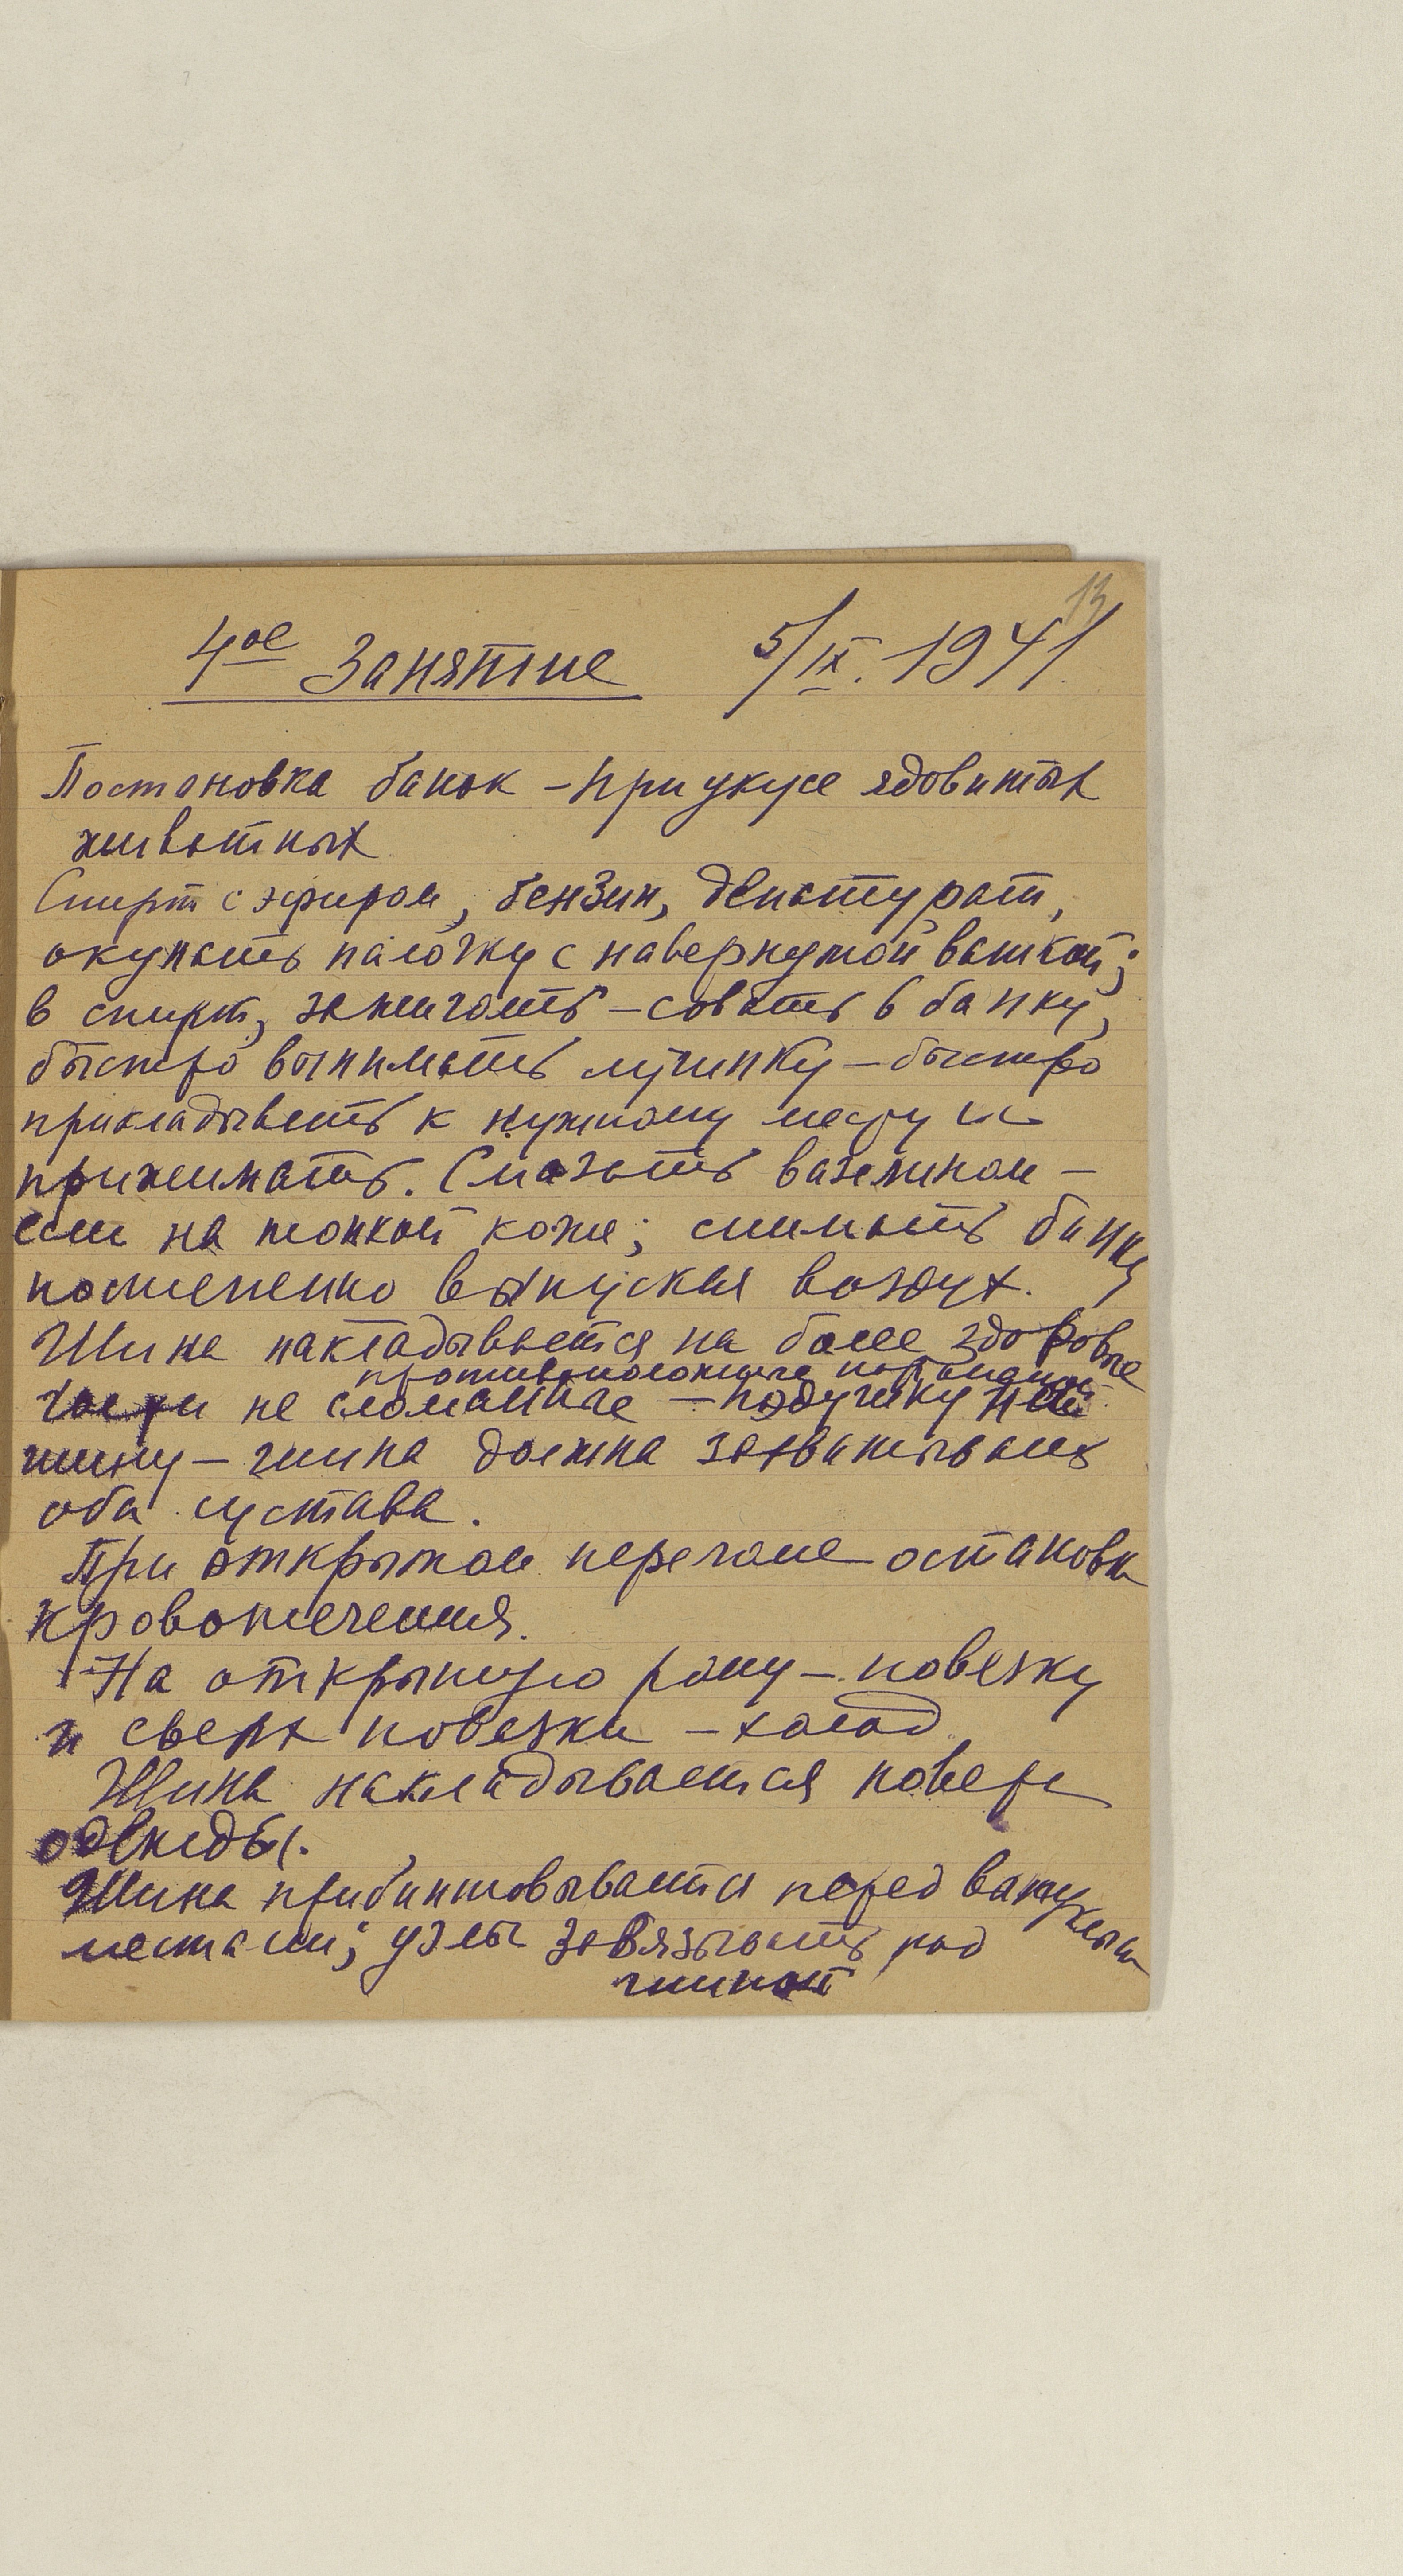 13
4ое Занятие 5/IX. 1941
Постановка банок – при укусе ядовитых
животных
Спирт с эфиром, бензин, денатурат,
окунать палочку с навернутой ваткой;
в спирт, зажигать – совать в банку,
быстро вынимать лучинку – быстро
прикладывать к нужному месту и
прижимать. Смазать вазелином –
если на тонкой коже; снимать банку
постепенно выпуская воздух.
Шина накладывается на более здоровые
противоположные
части не сломанные – подушку под
шину – шина должна захватывать
оба сустава.
При открытом переломе остановка
кровотечения.
На открытую рану – повязку
и сверх повязки – холод
Шина накладывается поверх
одежды.
Шина прибинтовывается перед выпуклыми
местами; узлы завязывать над
шиной